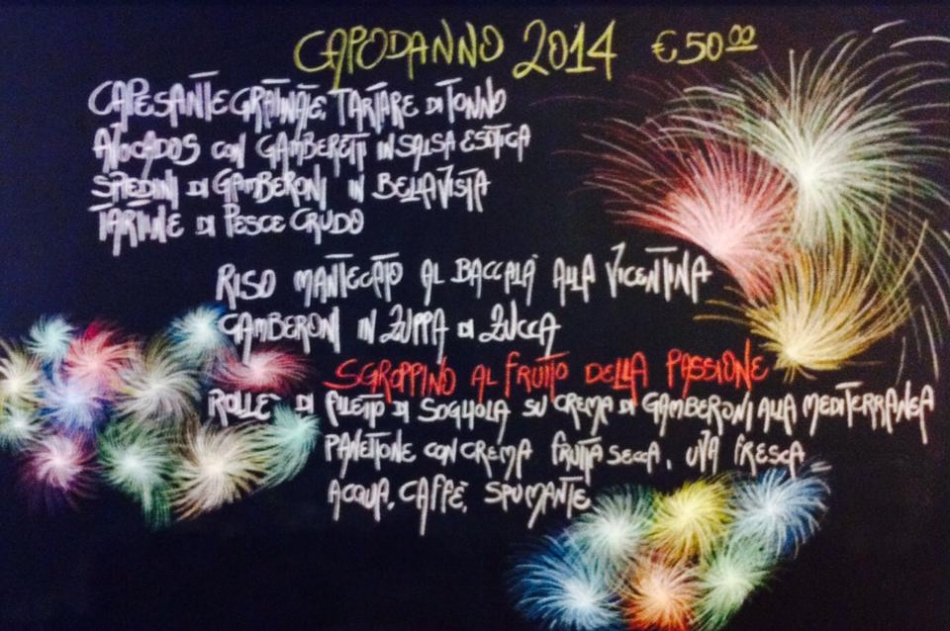 CAPODANNO 2014 €50.00
CAPESANTE GRATINATE, TARTARE DI TONNO
AVOCADOS CON GAMBERETTI IN SALSA ESOTICA
SPIEDINI DI GAMBERONI IN BELLAVISTA
TARTINE DI PESCE CRUDO
RISO MANTECATO AL BACCALÀ ALLA VICENTINA
GAMBERONI IN ZUPPA DI ZUCCA
SGROPPINO AL FRUTTO DELLA PASSIONE
ROLLÈ DI FILETTO DI SOGLIOLA SU CREMA DI GAMBERONI ALLA MEDITERRANEA
PANETTONE CON CREMA FRUTTA SECCA, UVA FRESCA
ACQUA, CAFFÈ, SPUMANTE